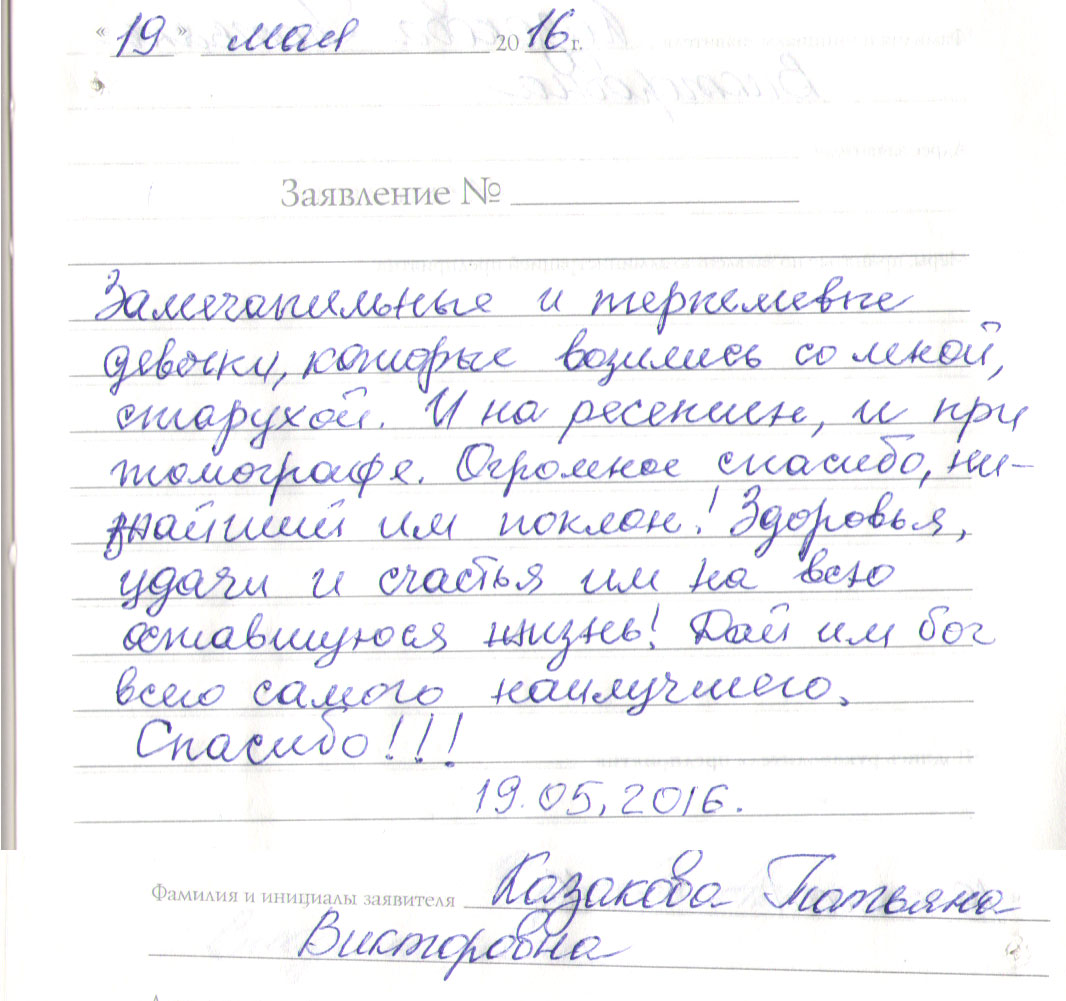 « 19 » мая 2016 г.
Заявление №
Замечательные и терпеливые
девочки, которые возились со мной,
старухой. И на ресепшен, и при
томографе. Огромное спасибо, ни-
жайший им поклон! Здоровья,
удачи и счастья им на всю
оставшуюся жизнь! Дай им бог
всего самого наилучшего.
Спасибо!!!
19.05.2016.
Фамилия и инициалы заявителя Казакова Татьяна
Викторовна